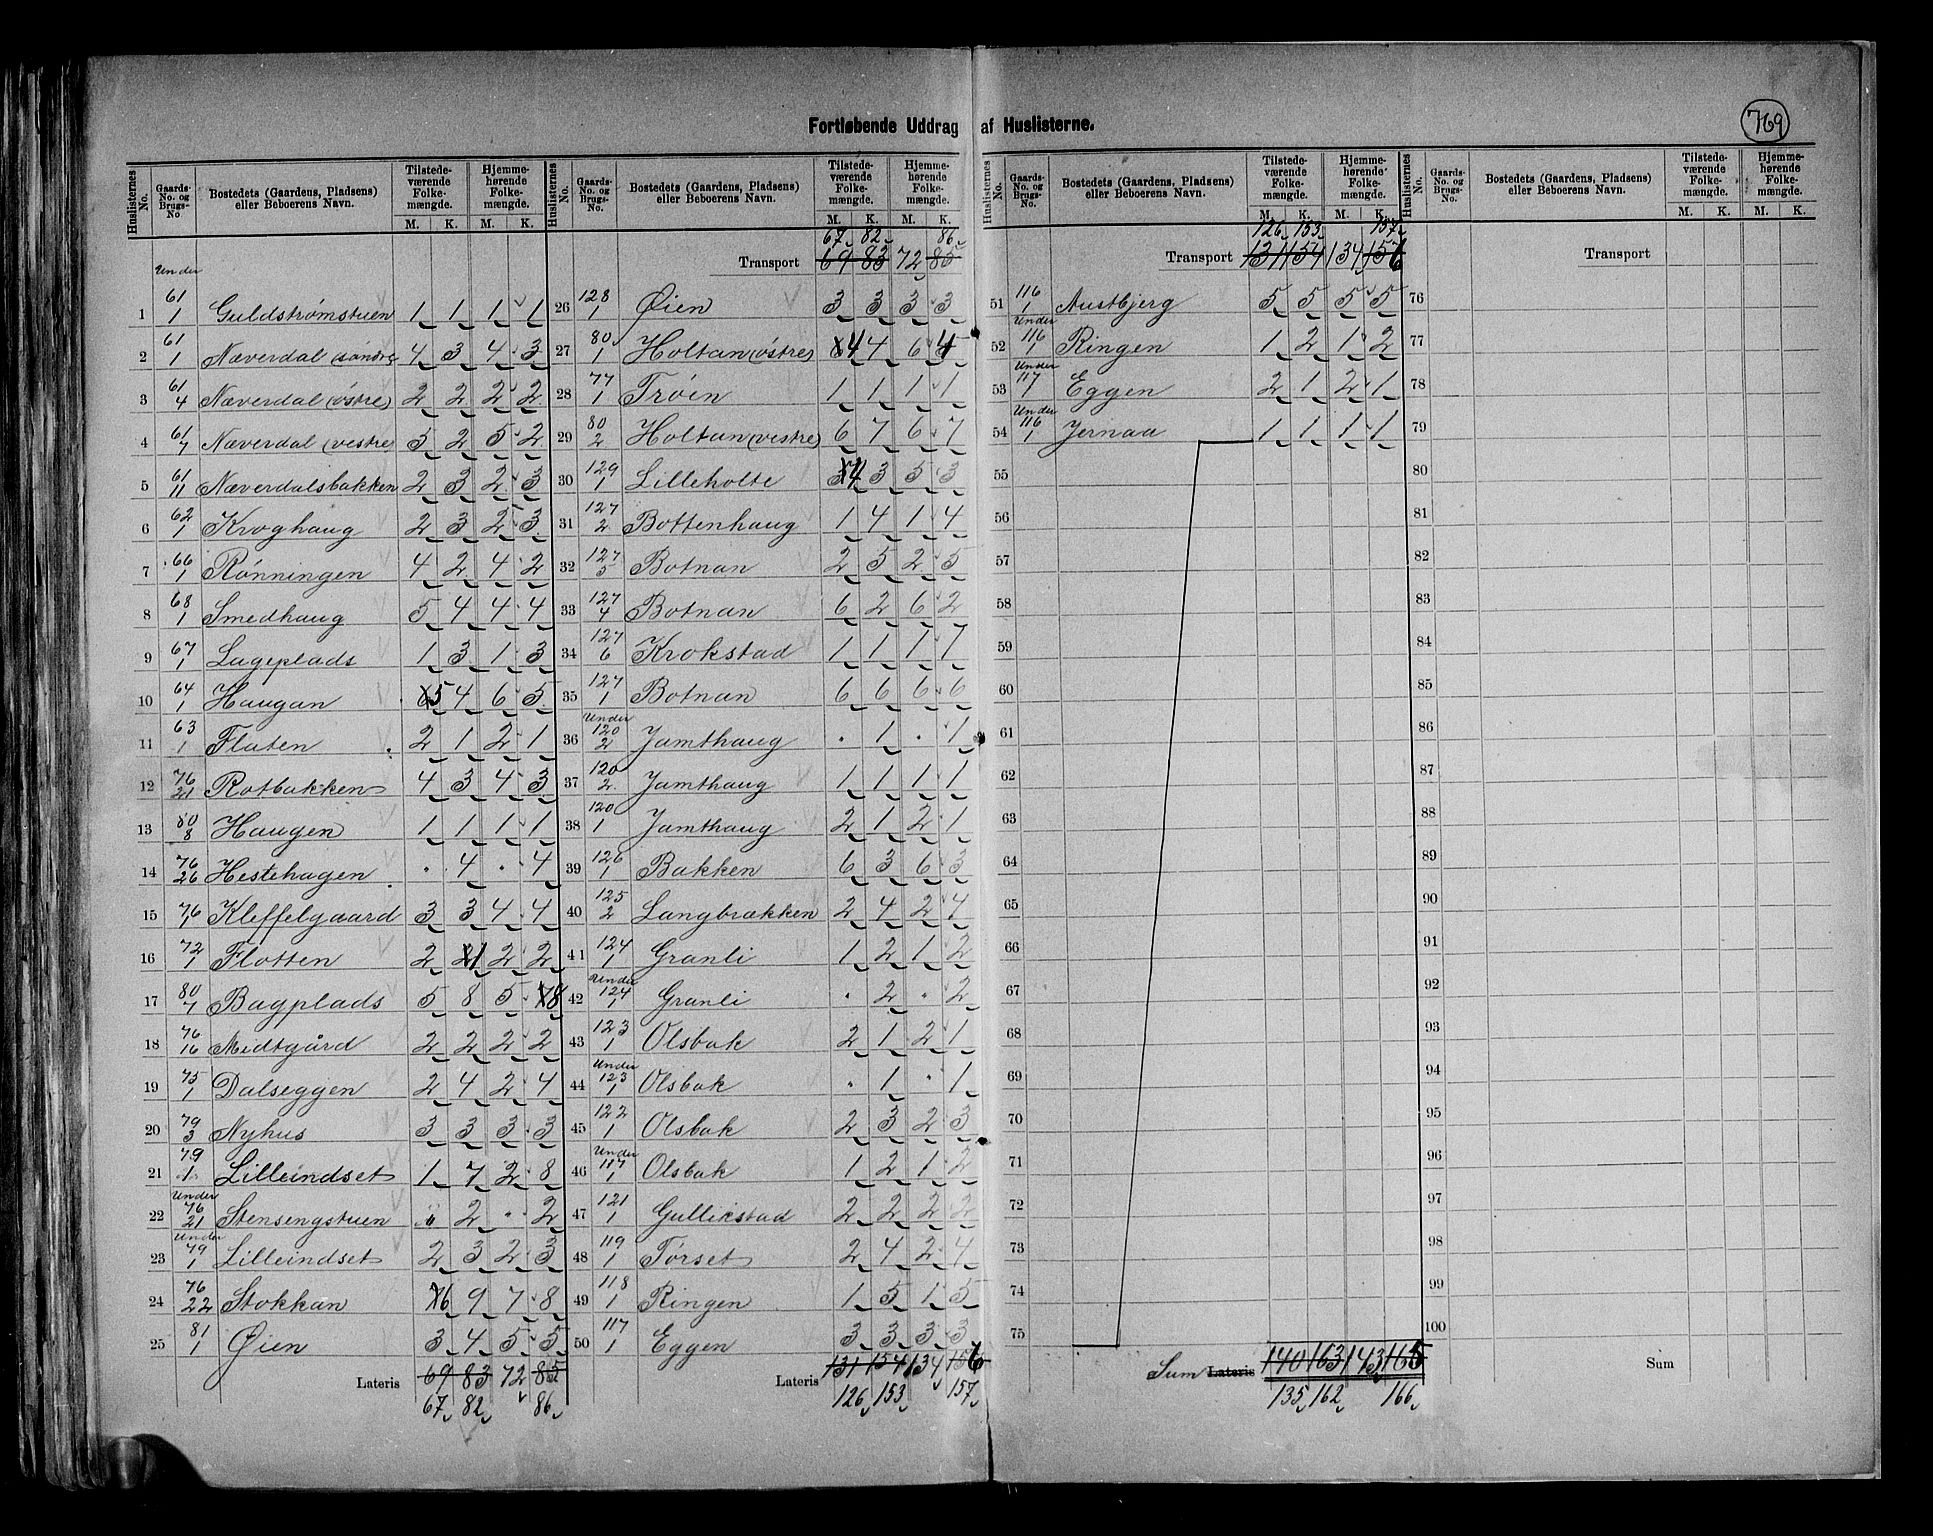 Fortløbende Uddrag af Huslisterne.
769
Huslisternes No. Gaards-No. og Brugs-No. Bostedets (Gaardens, Pladsen) eller Beboerens Navn. Tilstedeværende Folkemængde. M. K. Hjemmehørende Folkemængde. M. K.
1 Under 61/1 Guldstrømstuen 1 1 1 1
2 61/1 Næverdal (søndre) 4 3 4 3
3 61/4 Næverdal (østre) 2 2 2 2
4 61/7 Næverdal (vestre) 5 2 5 2
5 61/11 Næverdalsbakken 2 3 2 3
6 62/1 Kroghaug 2 3 2 3
7 66/1 Rønningen 4 2 4 2
8 68/1 Smedhaug 5 4 4 4
9 67/1 Lageplads 1 3 1 3
10 64/1 Haugan 5 4 6 5
11 63/1 Flaten 2 1 2 1
12 76/21 Rotbakken 4 3 4 3
13 80/8 Haugen 1 1 1 1
14 76/26 Hestehagen " 4 " 4
15 76/1 Kleffelgaard 3 3 4 4
16 72/1 Flotten 2 1 2 2
17 80/7 Bagplads 5 8 5 8
18 76/16 Midtgård 2 2 2 2
19 75/1 Dalseggen 2 4 2 4
20 79/3 Nyhus 3 3 3 3
21 79/1 Lilleindset 1 7 2 8
22 Under 76/21 Stensengstuen 2 " 2
23 Under 79/1 Lilleindset 2 3 2 3
24 76/22 Stokkan 6 9 7 8
25 81/1 Øien 3 4 5 5
Lateris 69 83 72 85
67 82 86
Huslisternes No. Gaards-No. og Brugs-No. Bostedets (Gaardens, Pladsens) eller Beboerens Navn. Tilstedeværende Folkemængde. M. K. Hjemmehørende Folkemængde. M. K.
67 82 86
Transport 69 83 72 85
26 128/1 Øien 3 3 3 3
27 80/1 Holtan (østre) 4 4 6 4
28 77/1 Trøen 1 1 1 1
29 80/2 Holtan (vestre) 6 7 6 7
30 129/1 Lilleholte 4 3 5 3
31 127/2 Bottenhaug 1 4 1 4
32 127/5 Botnan 2 5 2 5
33 127/4 Botnan 6 2 6 2
34 127/6 Krokstad 1 1 1 1
35 127/1 Botnan 6 6 6 6
36 Under 120/2 Jamthaug " 1 " 1
37 120/2 Jamthaug 1 1 1 1
38 120/1 Jamthaug 2 1 2 1
39 126/1 Bakken 6 3 6 3
40 125/2 Langbrækken 2 4 2 4
41 124/1 Granli 1 2 1 2
42 Under 124/1 Granli " 2 " 2
43 123/1 Olsbak 2 1 2 1
44 Under 123/1 Olsbak " 1 " 1
45 122/1 Olsbak 2 3 2 3
46 Under 117/1 Olsbak 1 2 1 2
47 121/1 Gullikstad 2 2 2 2
48 119/1 Tørset 2 4 2 4
49 118/1 Ringen 1 5 1 5
50 117/1 Eggen 3 3 3 3
Lateris 131 154 134 156
126 153 157
Huslisternes No. Gaards-No. og Brugs-No. Bostedets (Gaardens, Pladsens) eller Beboerens Navn. Tilstedeværende Folkemængde. M. K. Hjemmehørende Folkemængde. M. K.
126 153 157
Transport 131 154 134 156
51 116/1 Austbjerg 5 5 5 5
52 Under 116/1 Ringen 1 2 1 2
53 Under 117/1 Eggen 2 1 2 1
54 Under 116/1 Jernaa 1 1 1 1
55
56
57
58
59
60
61
62
63
64
65
66
67
68
69
70
71
72
73
74
75
Sum Lateris 140 163 143 165
135 162 166
Huslisternes No. Gaards-No. og Brugs-No. Bostedets (Gaardens, Pladsens) eller Beboerens Navn. Tilstedeværende Folkemængde. M. K. Hjemmehørende Folkemængde. M. K.
Transport
76
77
78
79
80
81
82
83
84
85
86
87
88
89
90
91
92
93
94
95
96
97
98
99
100
Sum